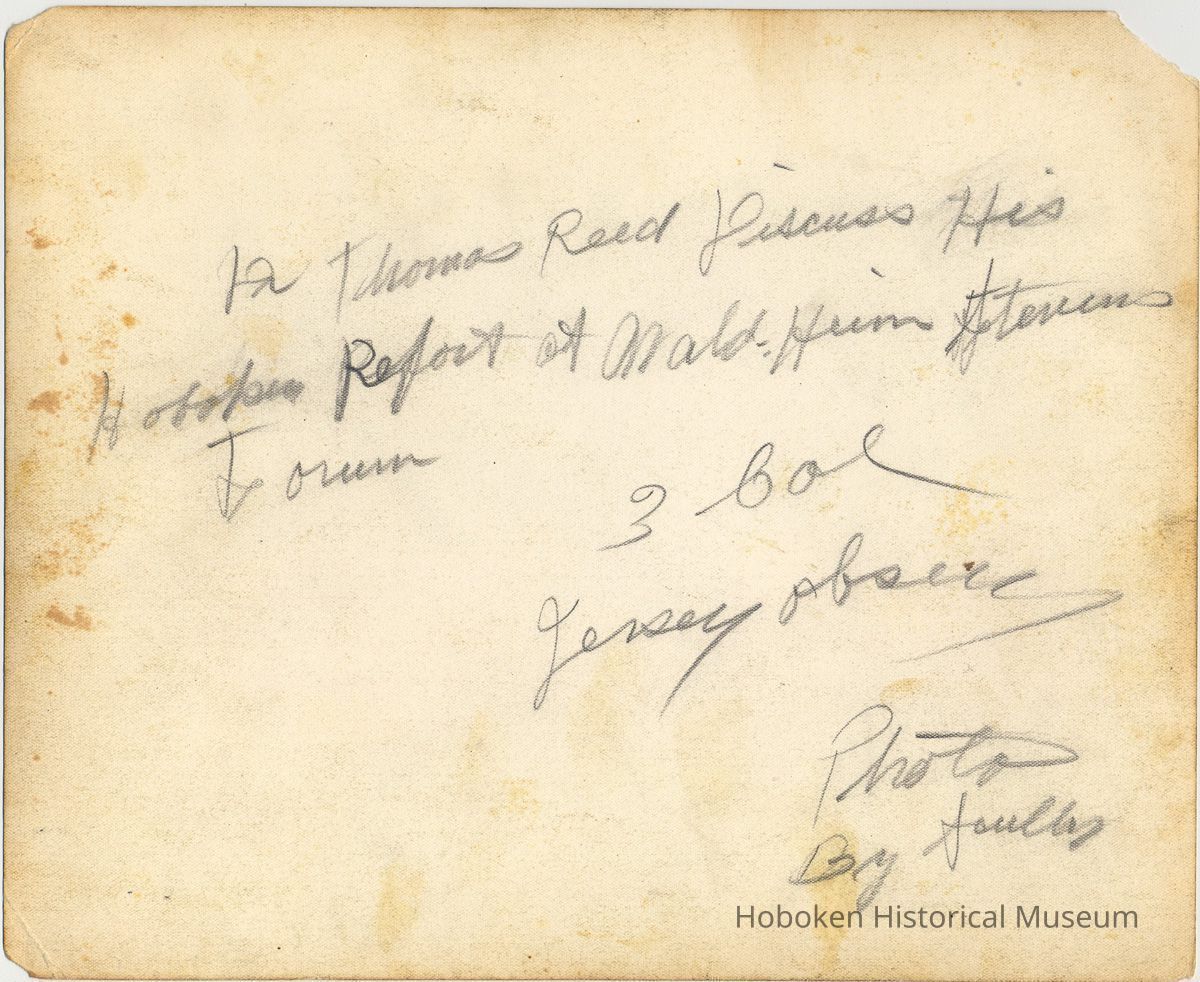 Dr Thomas Reed Discuss His
Hoboken Report at Wald-Heim Stevens
Forum
3 Col
Jersey Observ
Photo
By
Hoboken Historical Museum